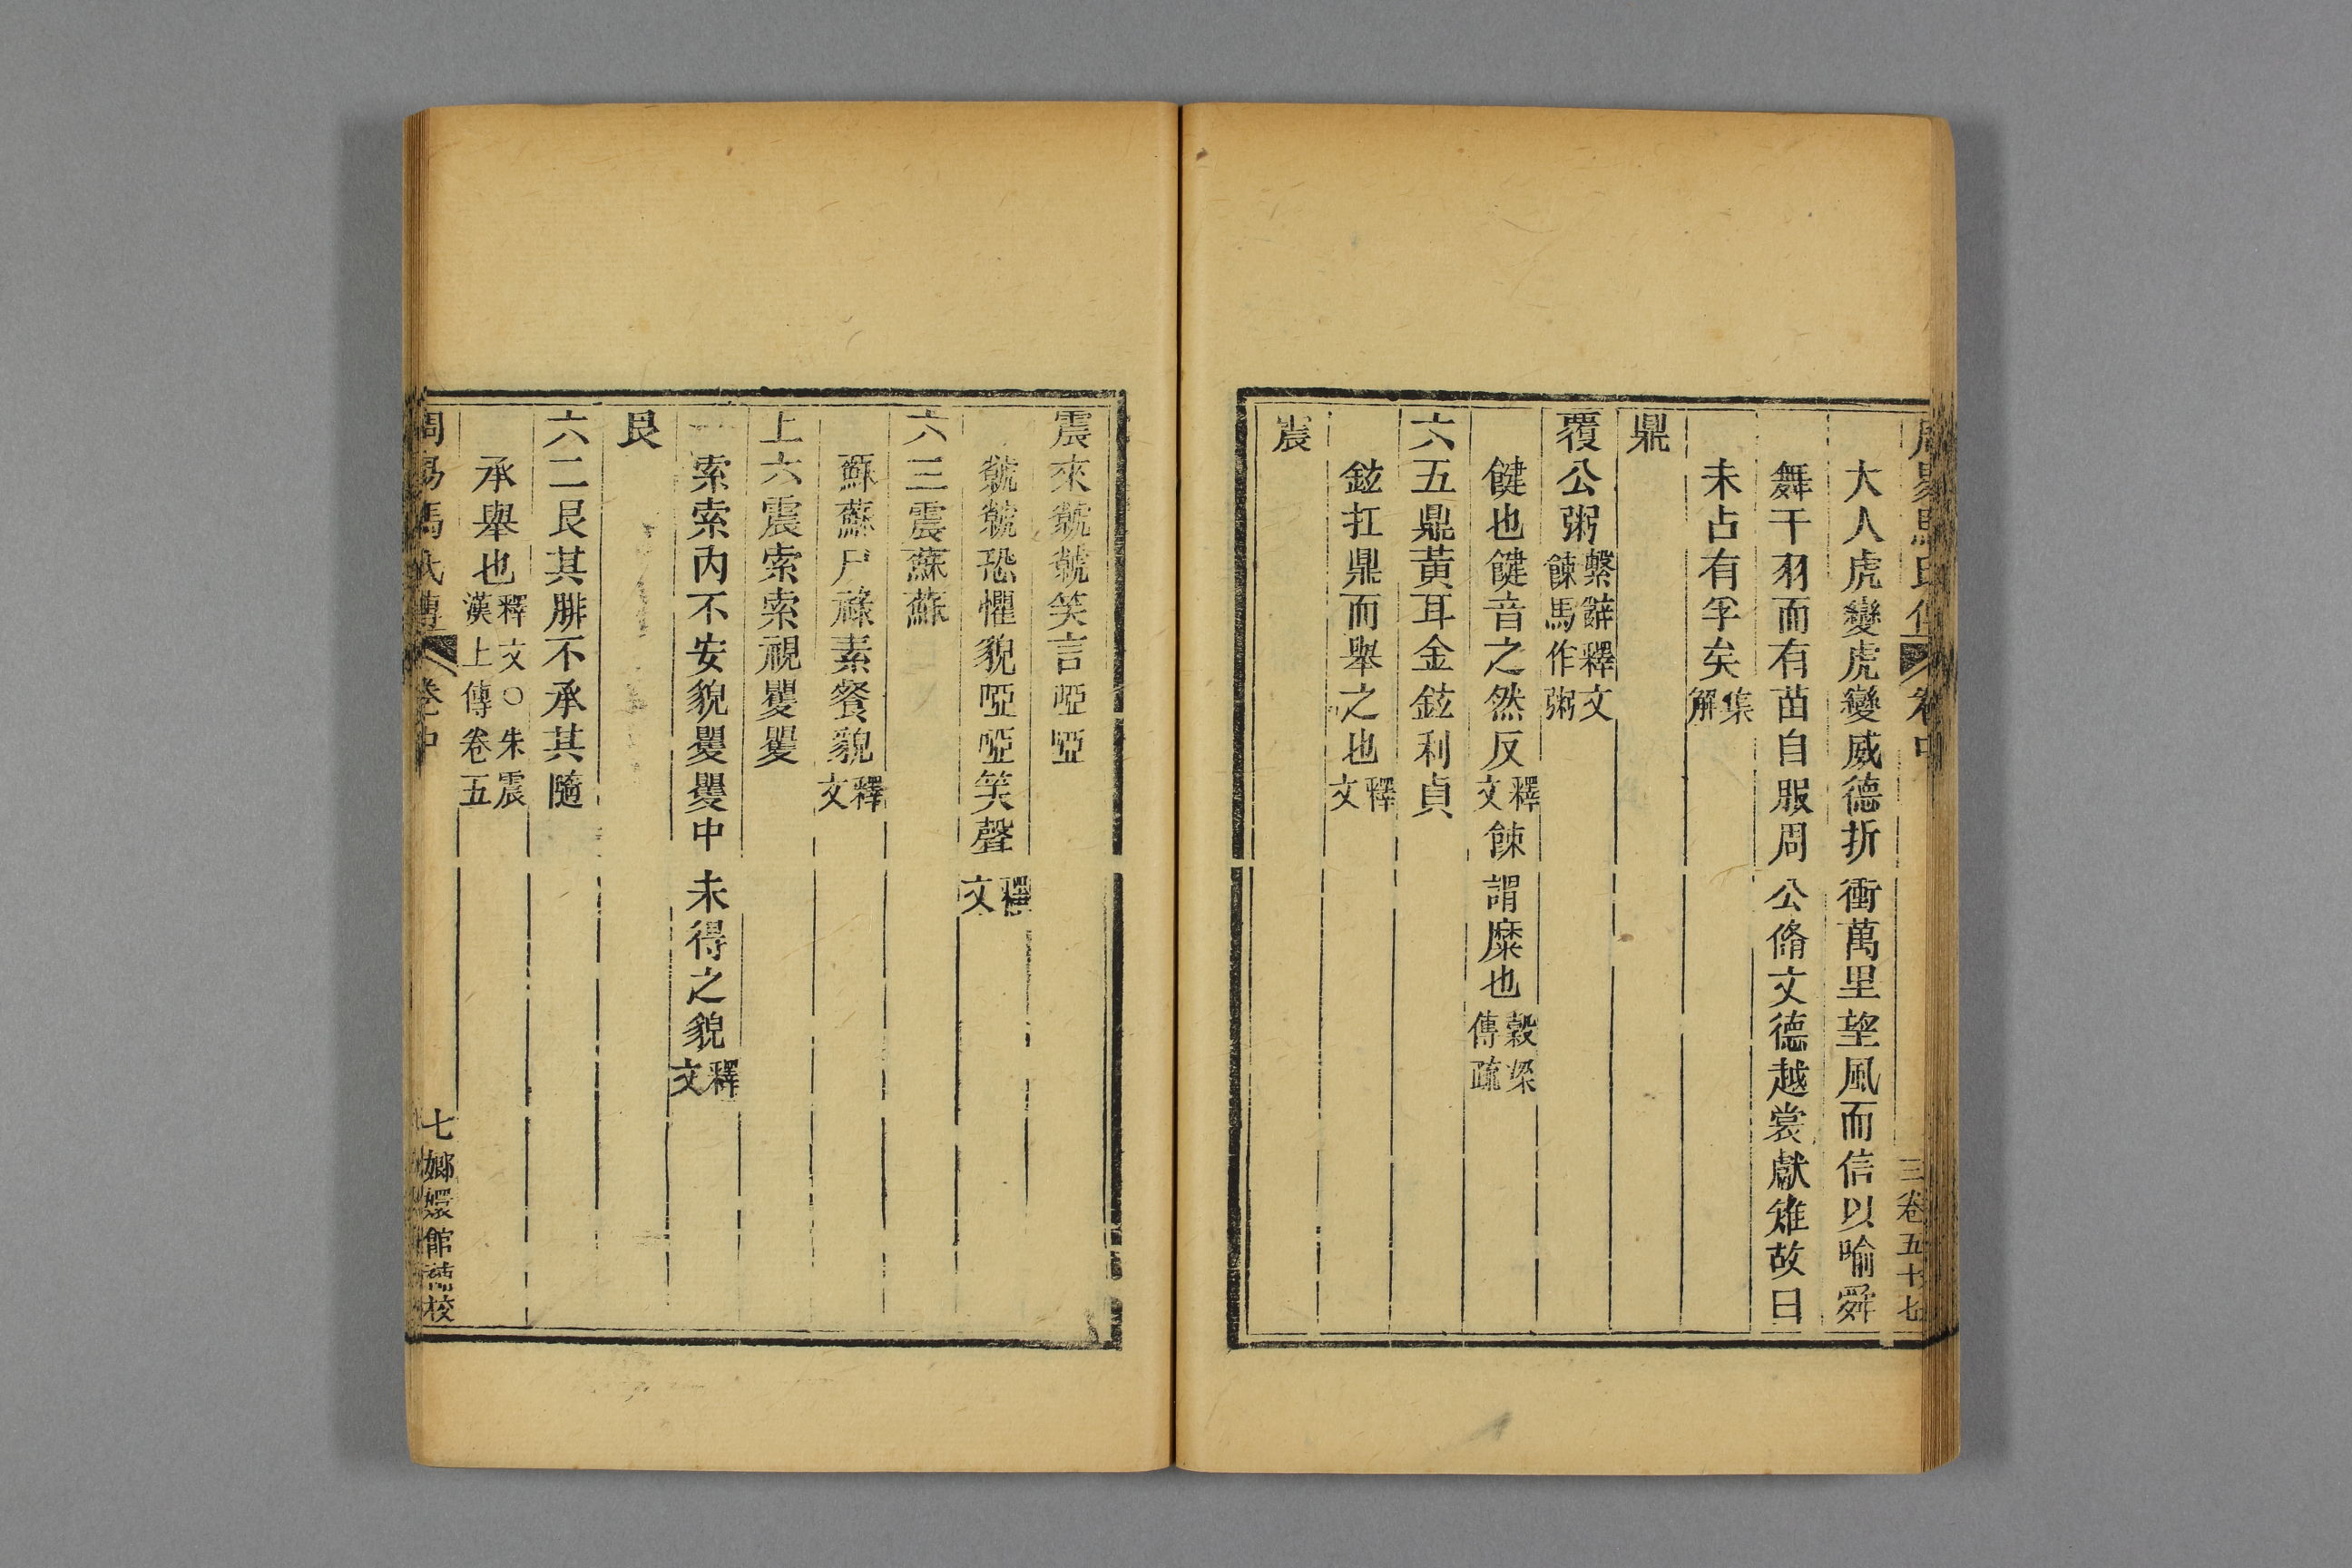 周易馬氏傳 卷中 三卷五十七
大人虎變虎變威德折衝萬里望風而信以喻舜
舞干羽而有苗自服周公脩文德越裳獻雉故曰
未占有孚矣集解
鼎
覆公粥繫辭釋文餗馬作粥
餰也餰音之然反釋文餗謂糜也穀梁傳疏
六五鼎黃耳金鉉利貞
鉉扛鼎而舉之也釋文
震
震來虩虩笑言啞啞
虩虩恐懼貌啞啞笑聲釋文
六三震蘇蘇
蘇蘇尸祿素餐貌釋文
上六震索索視矍矍
索索內不安貌矍矍中未得之貌釋文
艮
六二艮其腓不承其隨
承舉也釋文○朱震漢上傳卷五
周易馬氏傳 卷中 七 嫏嬛館補校